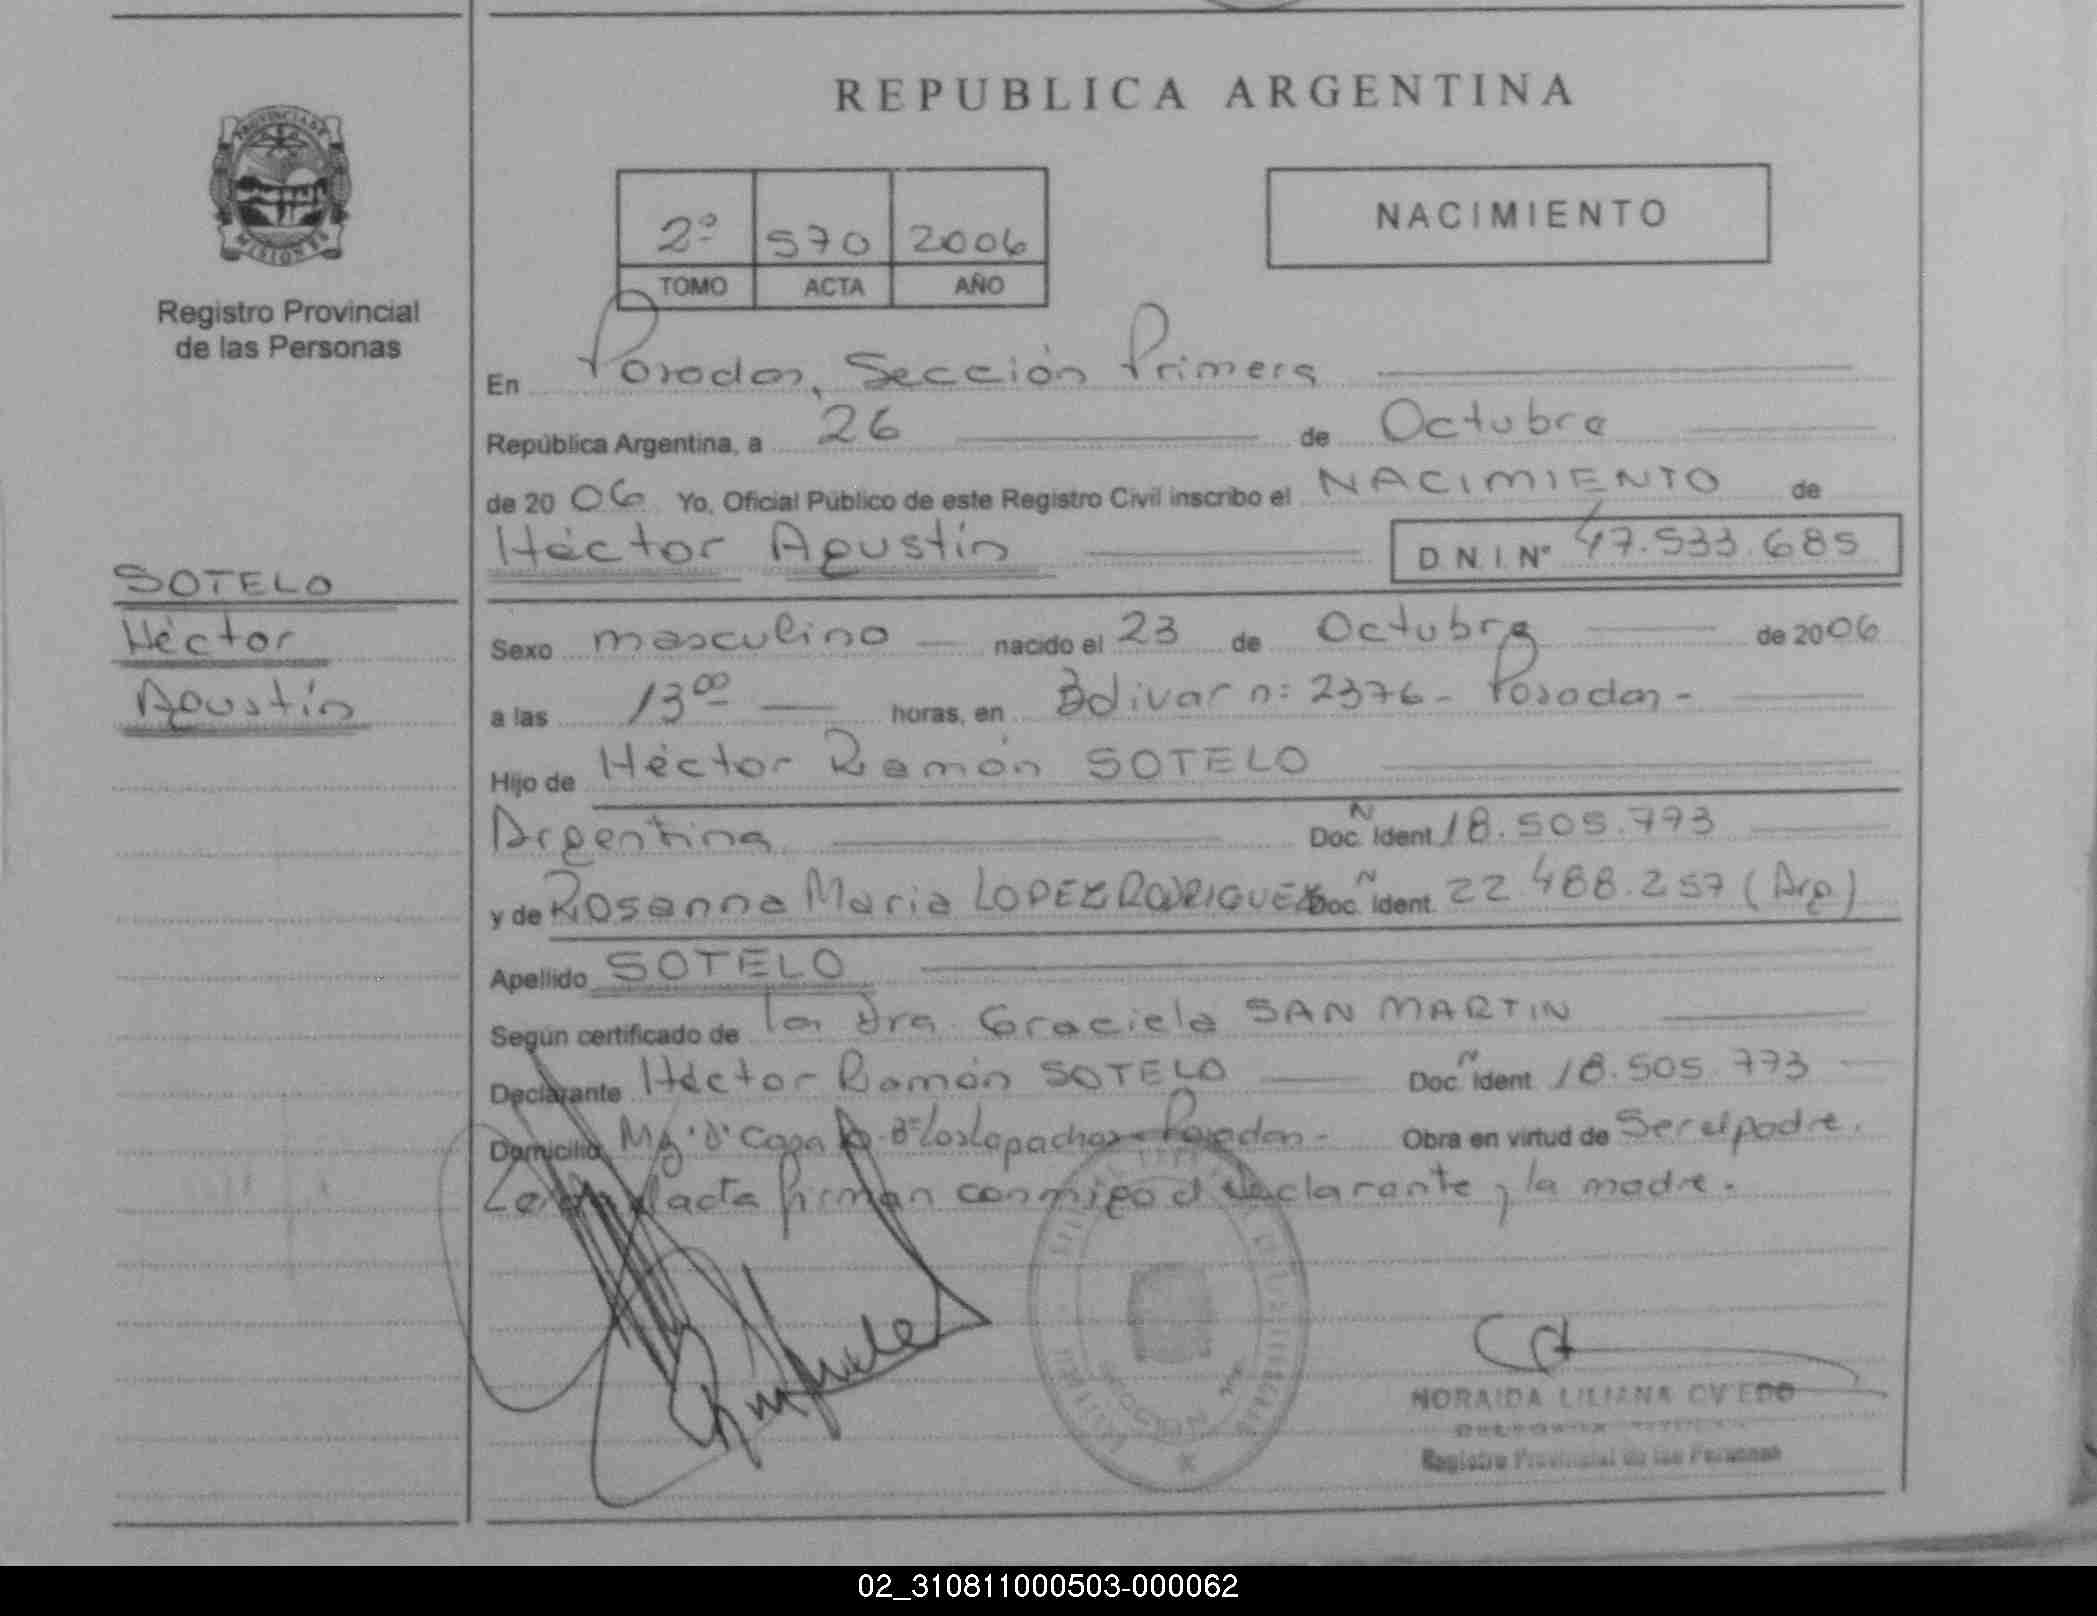 REPUBLICA ARGENTINA
PROVINCIA DE
MISIONES
Registro Provincial
de las Personas
2º 570 2006
TOMO ACTA AÑO
NACIMIENTO
En Posadas, Sección Primera
República Argentina, a 26 de Octubre
de 2006 Yo, Oficial Público de este Registro Civil inscribo el NACIMIENTO de
Héctor Agustín D.N.I. Nº 47.533.685
SOTELO
Héctor
Agustín
Sexo masculino nacido el 23 de Octubre de 2006
a las 13 00 horas, en Bolivar n: 2376 - Posadas -
Hijo de Héctor Ramón SOTELO
Argentina Doc. Ident. N 18.505.773
y de Rosanna Maria LOPEZ RODRIGUEZ Doc. Ident. N 22.488.257 (Arg)
Apellido SOTELO
Según certificado de la Dra. Graciela SAN MARTIN
Declarante Héctor Ramón SOTELO Doc. Ident. N 18.505.773
Domicilio Mz "D" Casa Bº Los Lapachos - Posadas - Obra en virtud de Ser el padre.
acta firman conmigo el declarante y la madre.
NORAIDA LILIANA OVIEDO
Registro Provincial de las Personas
02_310811000503-000062